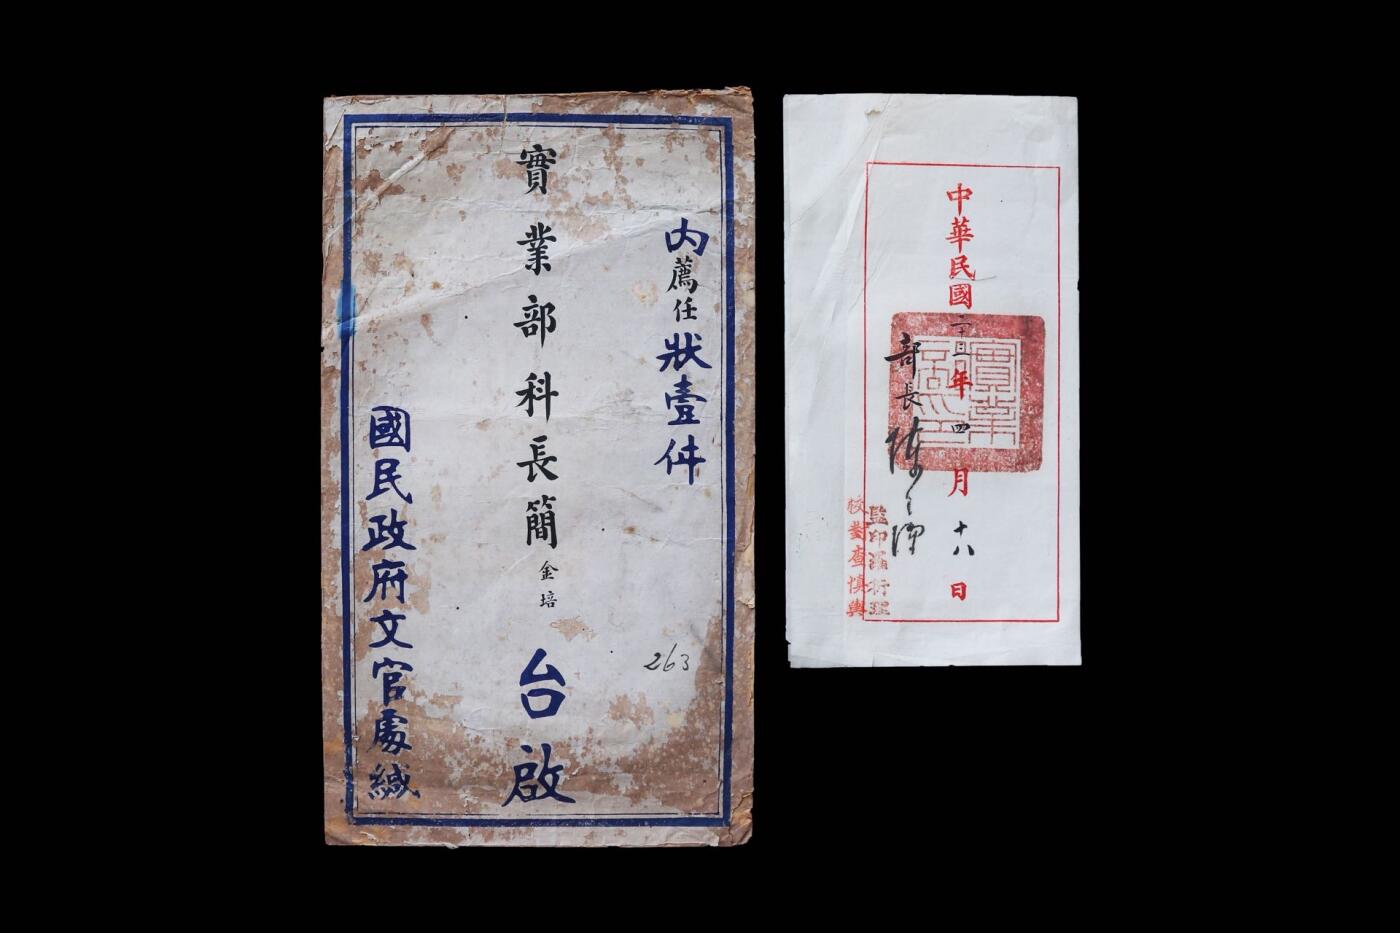 內薦任狀壹件
實業部科長簡金培台啟
國民政府文官處緘
263
中華民國二十三年四月十八日
實業部印
部長陳公博
監印羅衍理
校對查慎輿